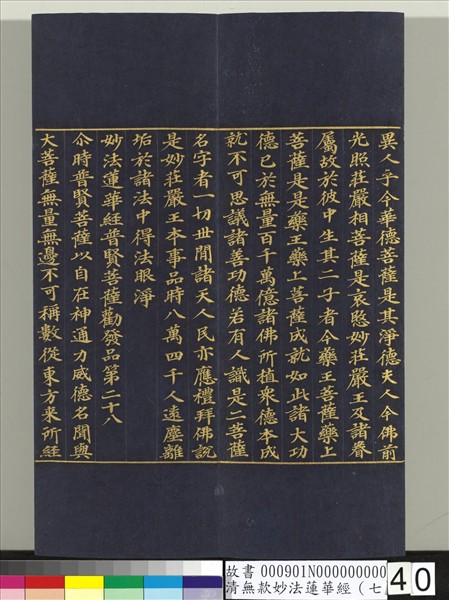 異人乎今華德菩薩是其淨德夫人今佛前
光照莊嚴相菩薩是哀愍妙莊嚴王及諸眷
屬故於彼中生其二子者今藥王菩薩藥上
菩薩是是藥王藥上菩薩成就如此諸大功
德已於無量百千萬億諸佛所植衆德本成
就不可思議諸善功德若有人識是二菩薩
名字者一切世間諸天人民亦應禮拜佛說
是妙莊嚴王本事品時八萬四千人遠塵離
垢於諸法中得法眼淨
妙法蓮華經普賢菩薩勸發品第二十八
尒時普賢菩薩以自在神通力威德名聞與
大菩薩無量無邊不可稱數從東方來所經
故書 000901N000000000
清無款妙法蓮華經(七
40